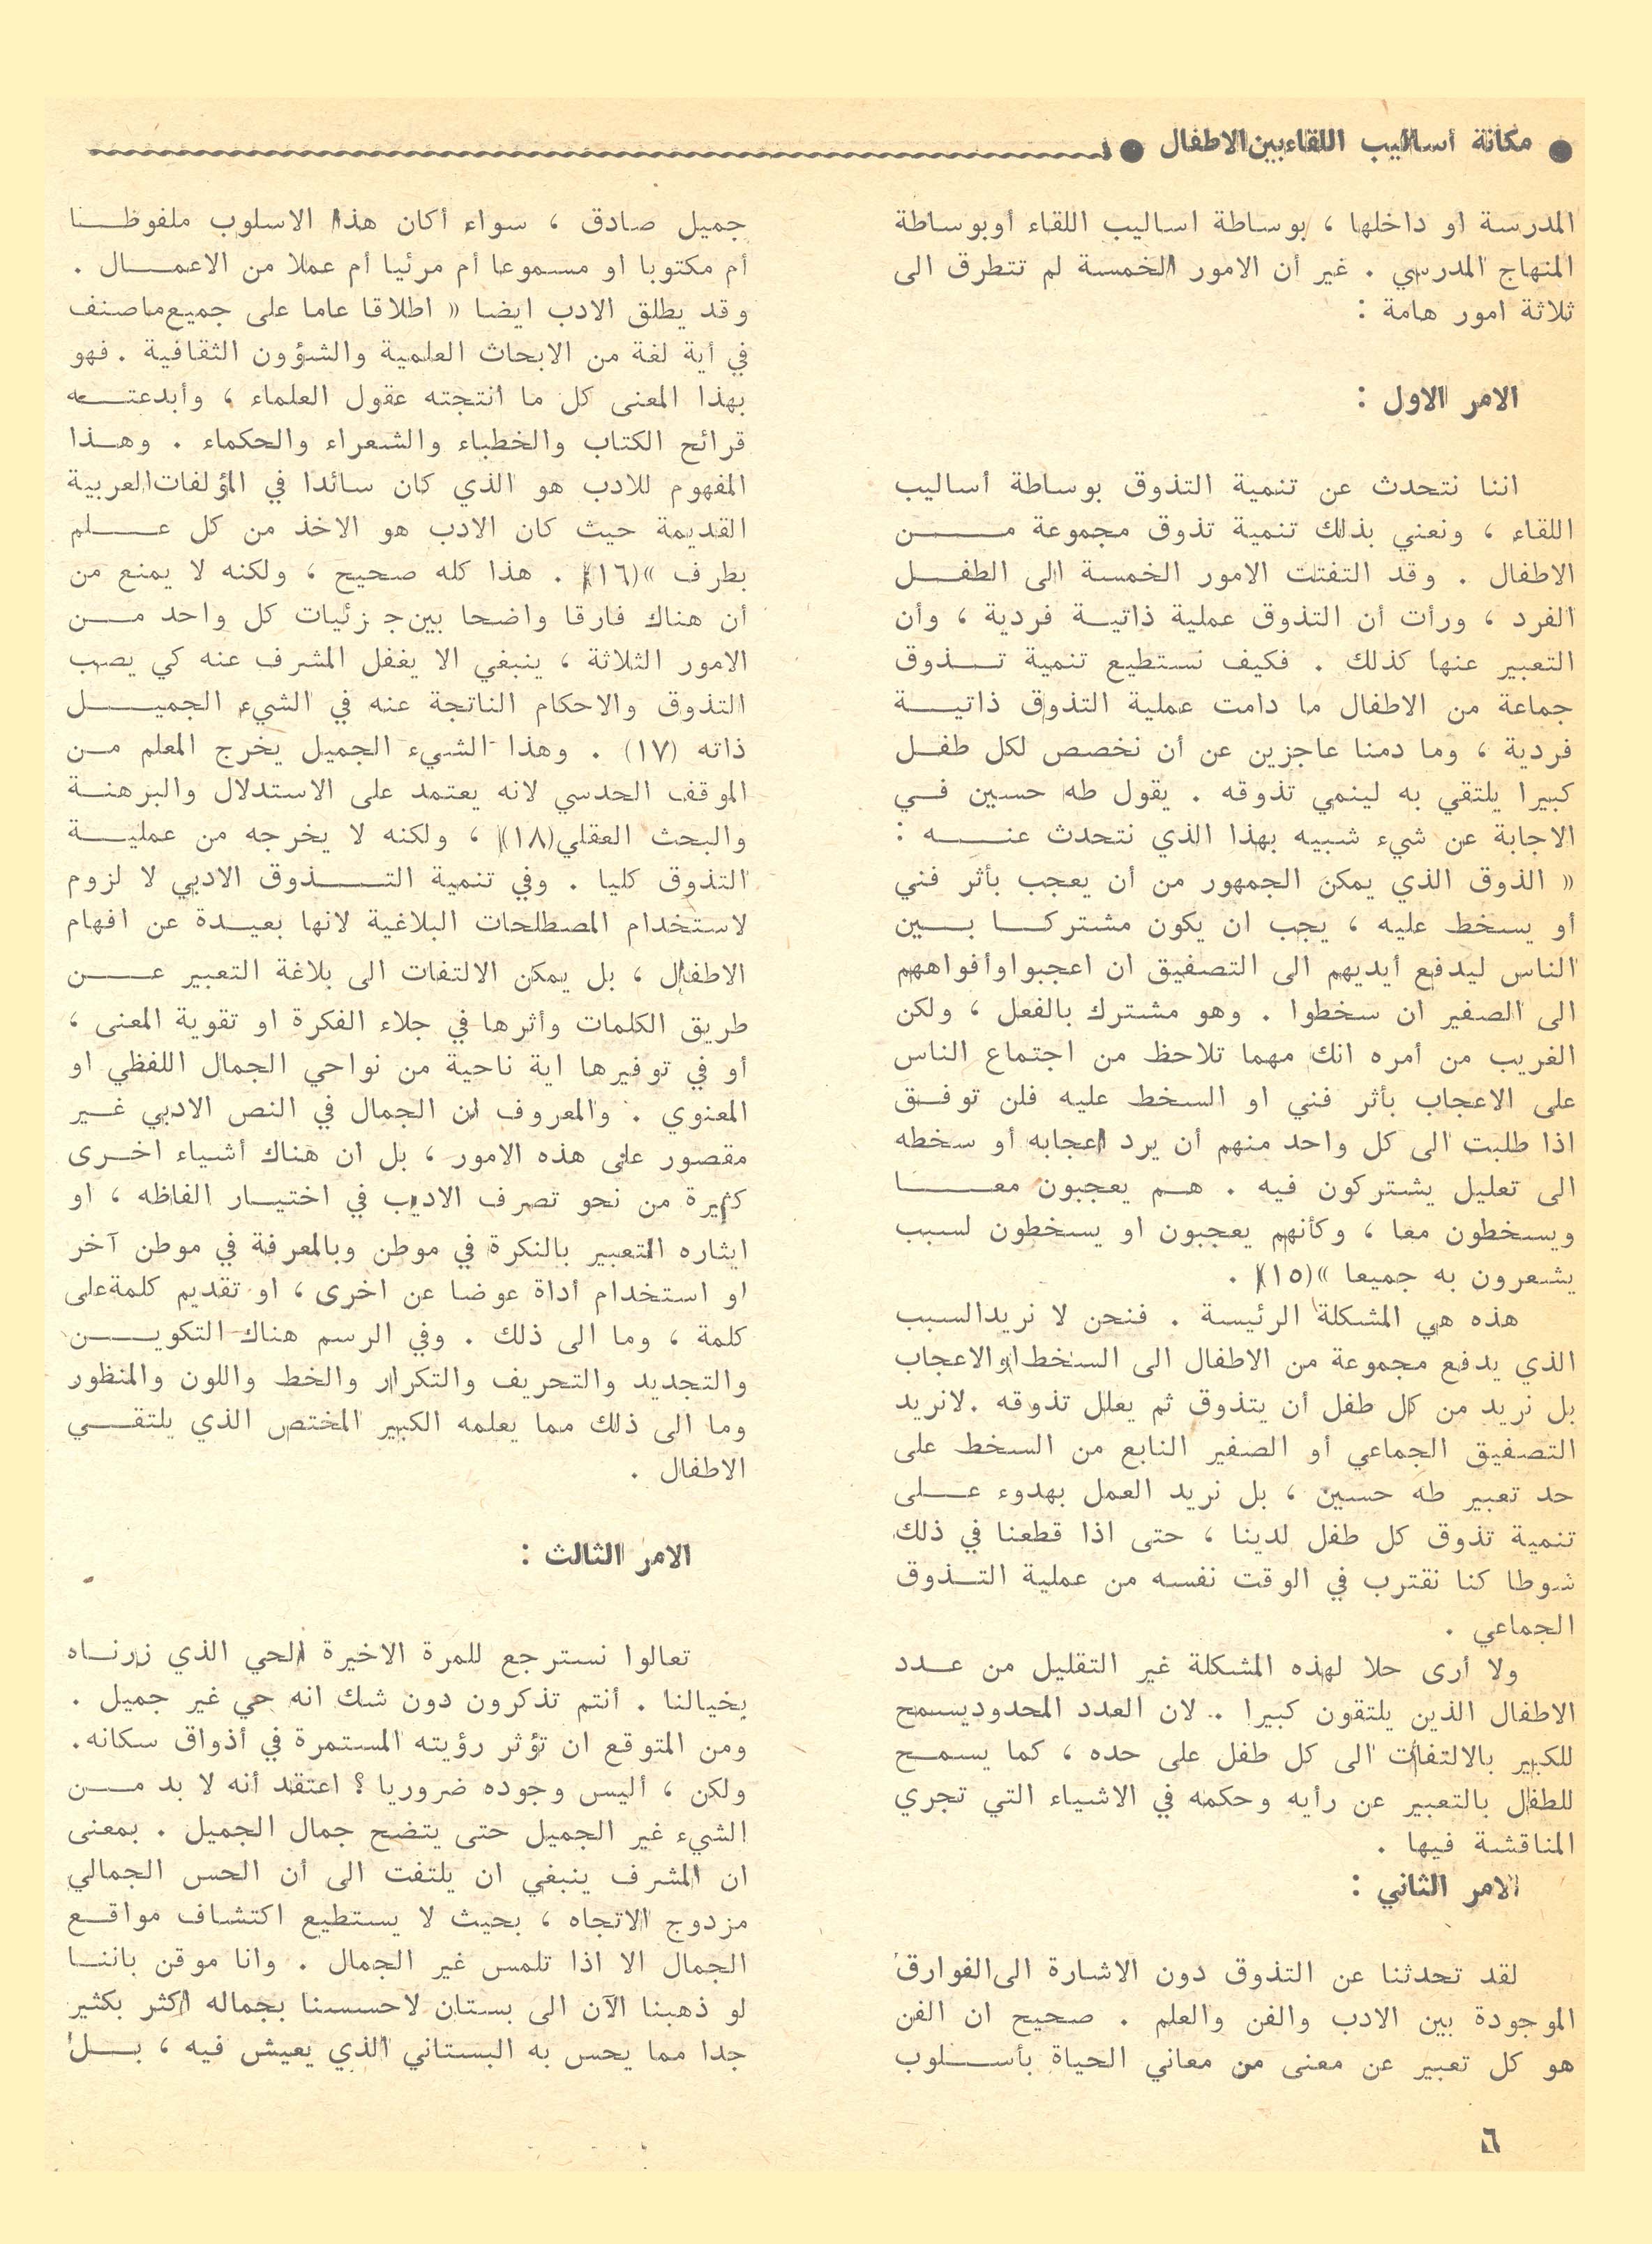 ● مكانة أساليب اللقاء بين الاطفال ●
المدرسة او داخلها ، بوساطة اساليب اللقاء أوبوساطة
المنهاج المدرسي . غير أن الامور الخمسة لم تتطرق الى
ثلاثة امور هامة :
الامر الاول :
اننا نتحدث عن تنمية التذوق بوساطة أساليب
اللقاء ، ونعني بذلك تنمية تذوق مجموعة مـــن
الاطفال . وقد التفتت الامور الخمسة الى الطفــل
الفرد ، ورأت أن التذوق عملية ذاتيــة فردية ، وأن
التعبير عنها كذلك . فكيف نستطيع تنمية تــذوق
جماعة من الاطفال ما دامت عملية التذوق ذاتيــة
فردية ، وما دمنا عاجزين عن أن نخصص لكل طفــل
كبيرا يلتقي به لينمي تذوقه . يقول طه حسين فــي
الاجابة عن شيء شبيه بهذا الذي نتحدث عنــه :
« الذوق الذي يمكن الجمهور من أن يعجب بأثر فني
أو يسخط عليه ، يجب ان يكون مشتركــا بــين
الناس ليدفع أيديهم الى التصفيق ان اعجبوا وأفواههم
الى الصفير ان سخطوا . وهو مشترك بالفعل ، ولكن
الغريب من أمره انك مهما تلاحظ من اجتماع الناس
على الاعجاب بأثر فني او السخط عليه فلن توفــق
اذا طلبت الى كل واحد منهم أن يرد اعجابه أو سخطه
الى تعليل يشتركون فيه . هــم يعجبون معــا
ويسخطون معا ، وكأنهم يعجبون او يسخطون لسبب
يشعرون به جميعا »(١٥) .
هذه هي المشكلة الرئيسة . فنحن لا نريدالسبب
الذي يدفع مجموعة من الاطفال الى السخط او الاعجاب
بل نريد من كل طفل أن يتذوق ثم يعلل تذوقه .لانريد
التصفيق الجماعي أو الصفير النابع من السخط على
حد تعبير طه حسين ، بل نريد العمل بهدوء عــلى
تنمية تذوق كل طفل لدينا ، حتى اذا قطعنا في ذلك
شوطا كنا نقترب في الوقت نفسه من عملية التــذوق
الجماعي .
ولا أرى حلا لهذه المشكلة غير التقليل من عــدد
الاطفال الذين يلتقون كبيرا . لان العدد المحدوديسمح
للكبير بالالتفات الى كل طفل على حده ، كما يسمــح
للطفل بالتعبير عن رأيه وحكمه في الاشياء التي تجري
المناقشة فيها .
الامر الثاني :
لقد تحدثنا عن التذوق دون الاشارة الى الفوارق
الموجودة بين الادب والفن والعلم . صحيح ان الفن
هو كل تعبير عن معنى من معاني الحياة بأســلوب
جميل صادق ، سواء أكان هذا الاسلوب ملفوظــنا
أم مكتوبا او مسموعا أم مرئيا أم عملا من الاعمــال .
وقد يطلق الادب ايضا « اطلاقا عاما على جميع ماصنف
في أية لغة من الابحاث العلمية والشؤون الثقافية . فهو
بهذا المعنى كل ما انتجته عقول العلماء ، وأبدعتــه
قرائح الكتاب والخطباء والشعراء والحكماء . وهــذا
المفهوم للادب هو الذي كان سائدا في المؤلفات العربية
القديمة حيث كان الادب هو الاخذ من كل عــلم
بطرف »(١٦) . هذا كله صحيح ، ولكنه لا يمنع من
أن هناك فارقا واضحا بين جزئيات كل واحد مــن
الامور الثلاثة ، ينبغي الا يغفل المشرف عنه كي يصب
التذوق والاحكام الناتجة عنه في الشيء الجميــل
ذاته (١٧) . وهذا الشيء الجميل يخرج المعلم مــن
الموقف الحدسي لانه يعتمد على الاستدلال والبرهنــة
والبحث العقلي(١٨) ، ولكنه لا يخرجه من عمليــة
التذوق كليا . وفي تنمية التــذوق الادبي لا لزوم
لاستخدام المصطلحات البلاغية لانها بعيــدة عن افهام
الاطفال ، بل يمكن الالتفات الى بلاغة التعبير عــن
طريق الكلمات وأثرها في جلاء الفكرة او تقوية المعنى ،
أو في توفيرها اية ناحية من نواحي الجمال اللفظي او
المعنوي . والمعروف ان الجمال في النص الادبي غــير
مقصور على هذه الامور ، بل ان هناك أشياء اخــرى
كثيرة من نحو تصرف الاديب في اختيــار الفاظه ، او
ايثاره التعبير بالنكرة في موطن وبالمعرفة في موطن آخر
او استخدام أداة عوضا عن اخرى ، او تقديم كلمة على
كلمة ، وما الى ذلك . وفي الرسم هناك التكويــن
والتجديد والتحريف والتكرار والخط واللون والمنظور
وما الى ذلك مما يعلمه الكبير المختص الذي يلتقــي
الاطفال .
الامر الثالث :
تعالوا نسترجع للمرة الاخيرة الحي الذي زرنــاه
بخيالنا . أنتم تذكرون دون شك انه حي غير جميل .
ومن المتوقع ان تؤثر رؤيته المستمرة في أذواق سكانه .
ولكن ، أليس وجوده ضروريا ؟ اعتقد أنه لا بد مــن
الشيء غير الجميل حتى يتضح جمال الجميل . بمعنى
ان المشرف ينبغي ان يلتفت الى أن الحس الجمالي
مزدوج الاتجاه ، بحيث لا يستطيع اكتشاف مواقــع
الجمال الا اذا تلمس غير الجمال . وانا موقن باننــا
لو ذهبنا الآن الى بستان لاحسسنا بجماله اكثر بكثير
جدا مما يحس به البستاني الذي يعيش فيه ، بــل
٦